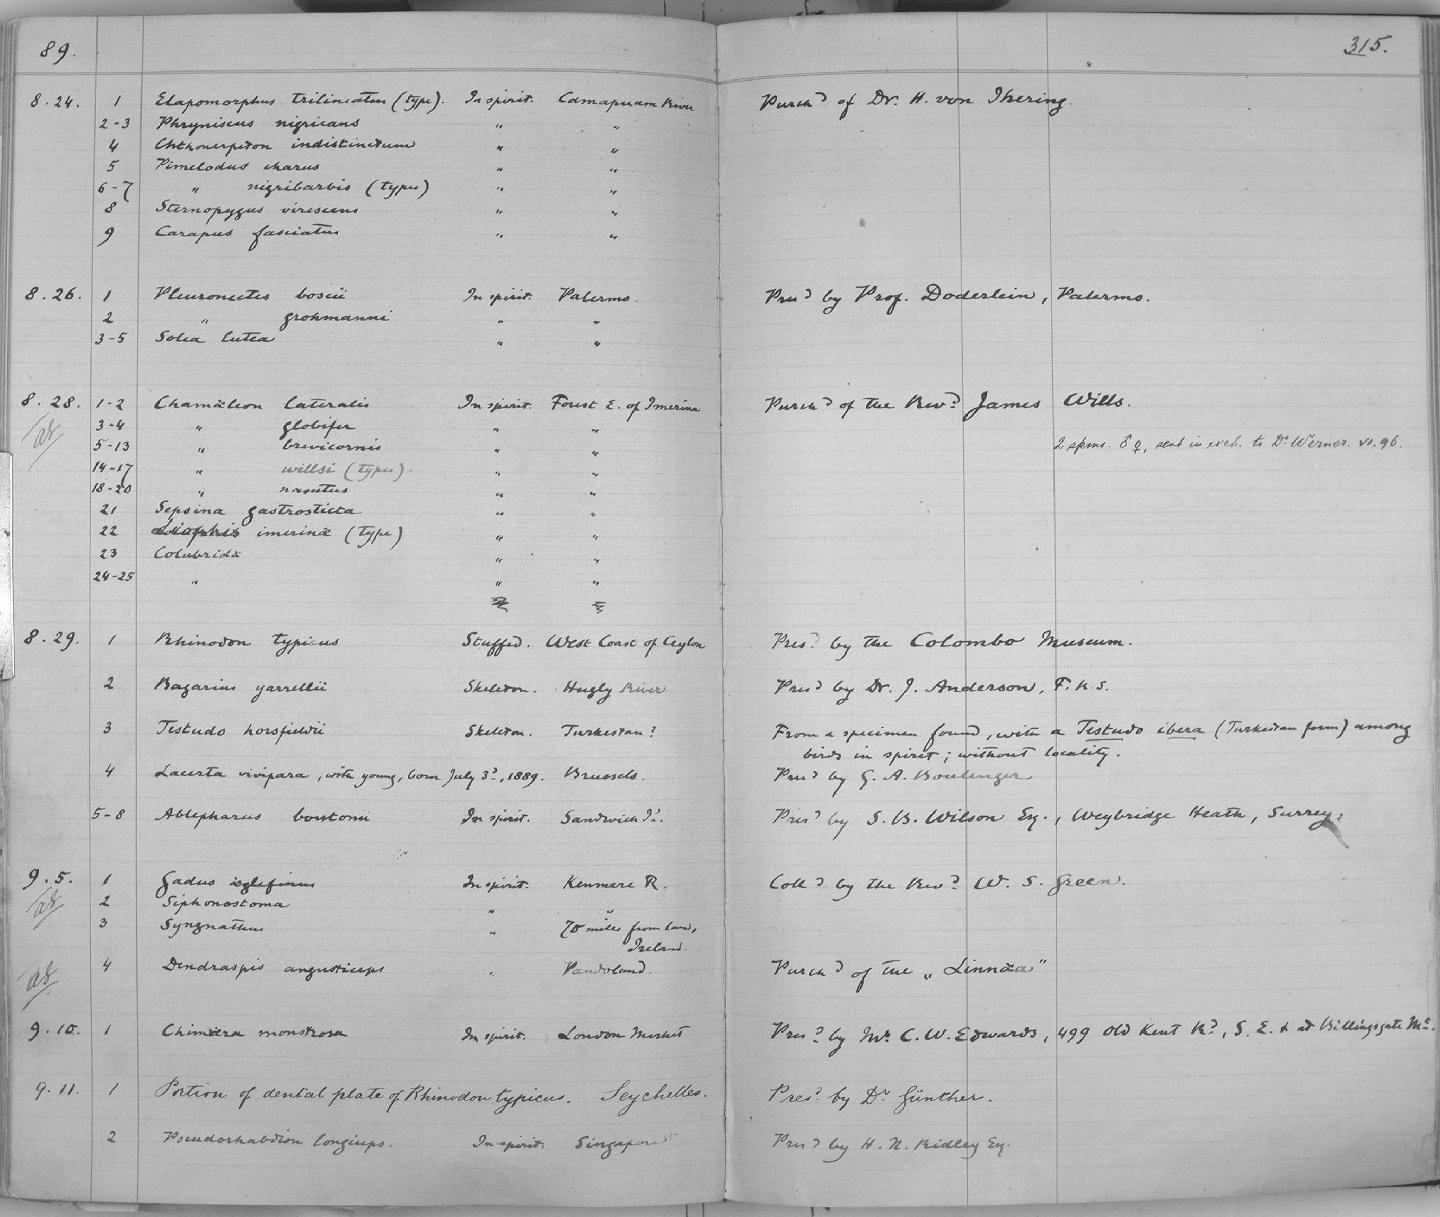 89.
315.
8.24. 1 Elapomorphus trilineatus (type). In spirit. Camaquam River Purchd of Dr. H. von Ihering.
2-3 Phryniscus nigricans " "
4 Chthonerpeton indistinctum " "
5 Pimelodus charus " "
6-7 " nigribarbis (types) " "
8 Sternopygus virescens " "
9 Carapus fasciatus " "
8.26. 1 Pleuronectes boscii In spirit. Palermo. Presd by Prof. Doderlein, Palermo.
2 " grohmanni " "
3-5 Solea lutea " "
8.28. 1-2 Chamæleon lateralis In spirit. Forest E. of Imerina Purchd of the Revd James Wills.
3-4 " globifer " "
5-13 " brevicornis " " 2 spms. ♂ ♀, sent in exch. to Dr Werner. VI. 96.
14-17 " willsi (types). " "
18-20 " nasutus " "
21 Sepsina gastrosticta " "
22 imerinæ (type) " "
23 Colubridæ " "
24-25 " " "
8.29. 1 Rhinodon typicus Stuffed. West Coast of Ceylon Presd by the Colombo Museum.
2 Bagarius yarrellii Skeleton. Hugly River Presd by Dr. J. Anderson, F.R.S.
3 Testudo horsfieldii Skeleton. Turkestan? From a specimen found, with a Testudo ibera (Turkestan form) among
birds in spirit; without locality.
4 Lacerta vivipara, with young, born July 3d, 1889. Brussels. Presd by G. A. Boulenger
5-8 Ablepharus boutonii In spirit. Sandwich Ids. Presd by S. B. Wilson Esq., Weybridge Heath, Surrey.
9.5. 1 Gadus æglefinus In spirit. Kenmare R. Colld by the Revd W. S. Green.
2 Siphonostoma " "
3 Syngnathus " 70 miles from land,
Ireland.
4 Dendraspis angusticeps " Pandoland. Purchd of the "Linnæa"
9.10. 1 Chimæra monstrosa In spirit. London Market Presd by Mr C. W. Edwards, 499 Old Kent Rd, S.E. & at Billingsgate Mt.
9.11. 1 Portion of dental plate of Rhinodon typicus. Seychelles. Presd by Dr Günther.
2 Pseudorhabdion longiceps. In spirit. Singapore Presd by H. N. Ridley Esq.